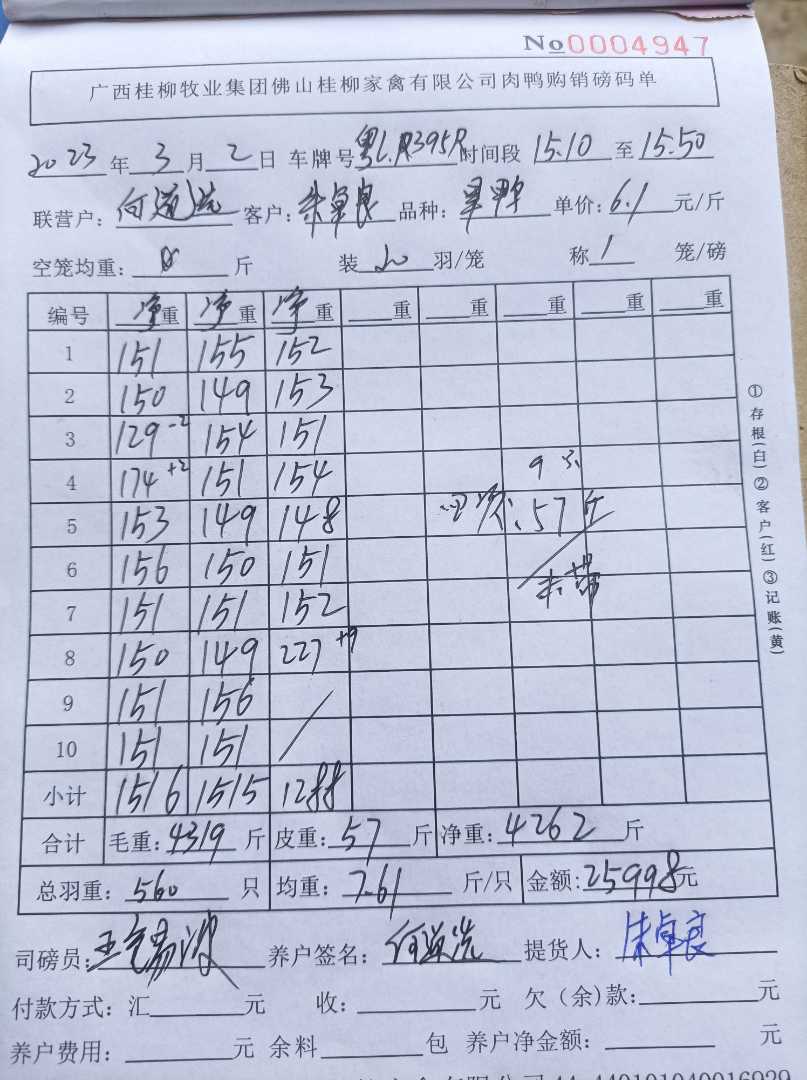 No0004947
广西桂柳牧业集团佛山桂柳家禽有限公司肉鸭购销磅码单
2023年3月2日 车牌号粤L.R395R时间段15:10至15:50
联营户:何道洗 客户:朱卓良 品种:单价:6.1元/斤
空笼均重:0斤 装20羽/笼 称1笼/磅
编号 净重 净重 净重 重 重 重 重 重
1 151 155 152
2 150 149 153
3 129-2 154 151
4 174+2 151 154
9只
5 153 149 148
:57斤
6 156 150 151
7 151 151 152
8 150 149 227+9
9 151 156 /
10 151 151
小计 1516 1515 1288
合计 毛重:4319斤 皮重:57斤 净重:4262斤
总羽重:560只 均重:7.61斤/只 金额:25998元
司磅员: 养户签名:何道洗 提货人:朱卓良
付款方式:汇元 收:元 欠(余)款:元
养户费用:元 余料包 养户净金额:元
①存根(白)②客户(红)③记账(黄)